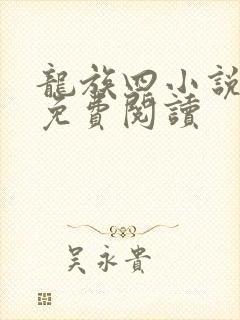 龍族四小說
免費閱讀
吴永貴